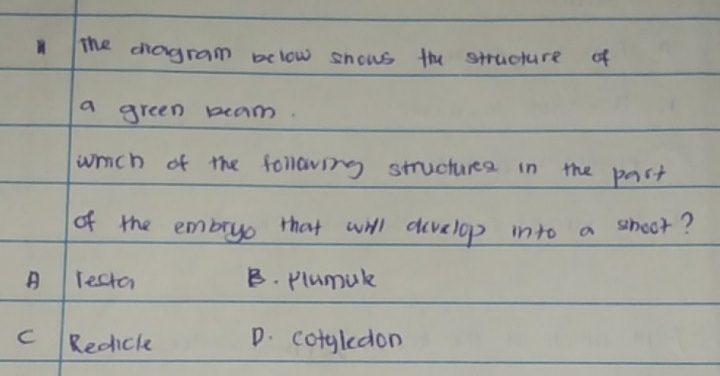 The diagram below shows the structure of
a green beam.
which of the following structures in the part
of the embryo that will develop into a shoot?
A Testa B. Plumule
C Redicle D. Cotyledon